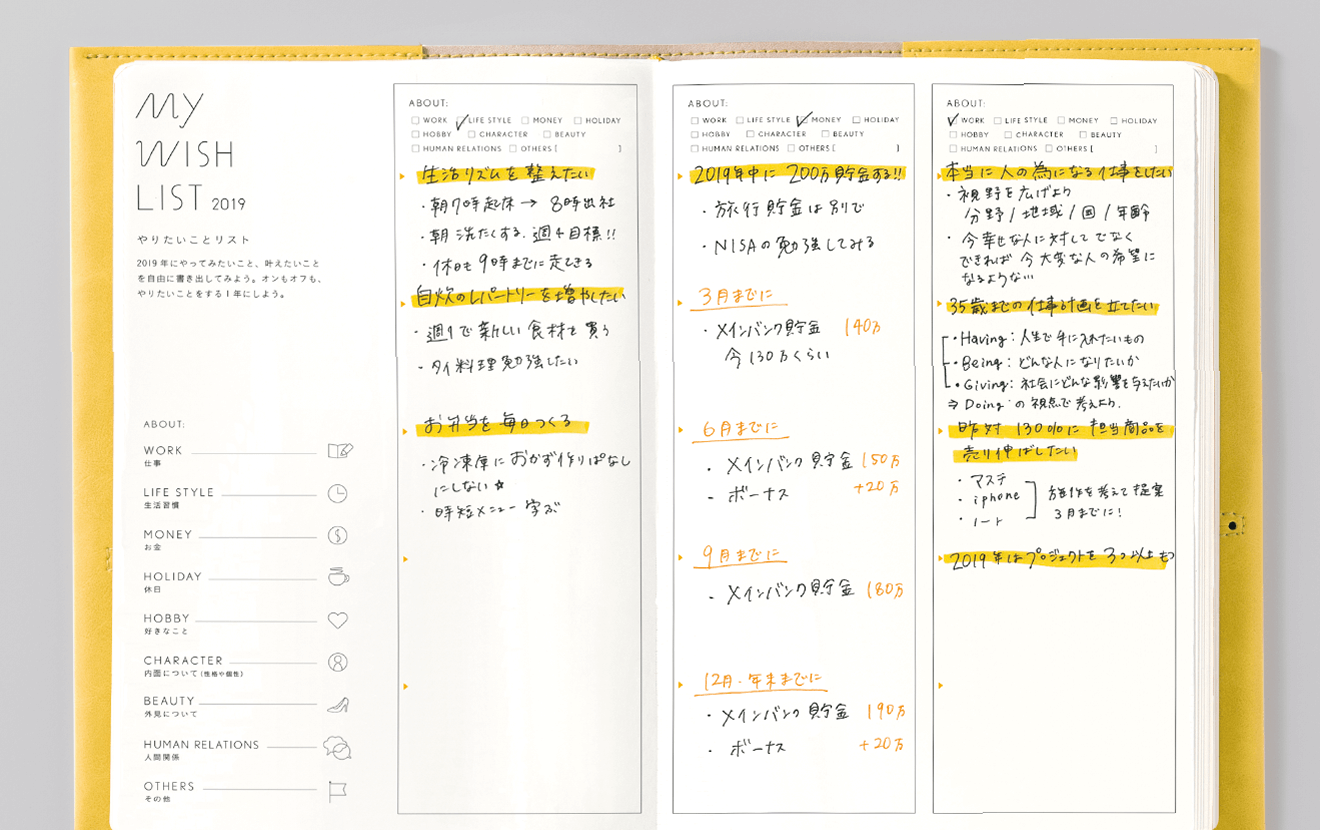 My
WISH
LIST 2019
やりたいことリスト
2019年にやってみたいこと、叶えたいこと
を自由に書き出してみよう。オンもオフも、
やりたいことをする1年にしよう。
ABOUT:
WORK
仕事
LIFE STYLE
生活習慣
MONEY
お金
HOLIDAY
休日
HOBBY
好きなこと
CHARACTER
内面について(性格や個性)
BEAUTY
外見について
HUMAN RELATIONS
人間関係
OTHERS
その他
ABOUT:
□ WORK ✓ LIFE STYLE □ MONEY □ HOLIDAY
□ HOBBY □ CHARACTER □ BEAUTY
□ HUMAN RELATIONS □ OTHERS [ ]
生活リズムを整えたい
・朝7時起床→8時出社
・朝洗たくする.週4目標!!
・休日も9時までに起きる
自炊のレパートリーを増やしたい
・週1で新しい食材を買う
・タイ料理勉強したい
お弁当を毎日つくる
・冷凍庫におかず作りぱなし
にしない☆
・時短メニュー学ぶ
ABOUT:
□ WORK □ LIFE STYLE ✓ MONEY □ HOLIDAY
□ HOBBY □ CHARACTER □ BEAUTY
□ HUMAN RELATIONS □ OTHERS [ ]
2019年中に200万貯金する!!
・旅行貯金は別で
・NISAの勉強してみる
3月までに
・メインバンク貯金 140万
今130万くらい
6月までに
・メインバンク貯金 150万
・ボーナス +20万
9月までに
・メインバンク貯金 180万
12月・年末までに
・メインバンク貯金 190万
・ボーナス +20万
ABOUT:
✓ WORK □ LIFE STYLE □ MONEY □ HOLIDAY
□ HOBBY □ CHARACTER □ BEAUTY
□ HUMAN RELATIONS □ OTHERS [ ]
本当に人の為になる仕事をしたい
・視野を広げよう
分野/地域/国/年齢
・今幸せな人に対してでなく
できれば今大変な人の希望に
なるような…
35歳までの仕事計画を立てたい
・Having:人生で手に入れたいもの
・Being:どんな人になりたいか
・Giving:社会にどんな影響を与えたいか
⇒ Doing の視点で考えよう.
昨対130%に担当商品を
売り伸ばしたい
・マステ
・iphone
・ノート
施作を考えて提案
3月までに!
2019年はプロジェクトを3つ以上もつ